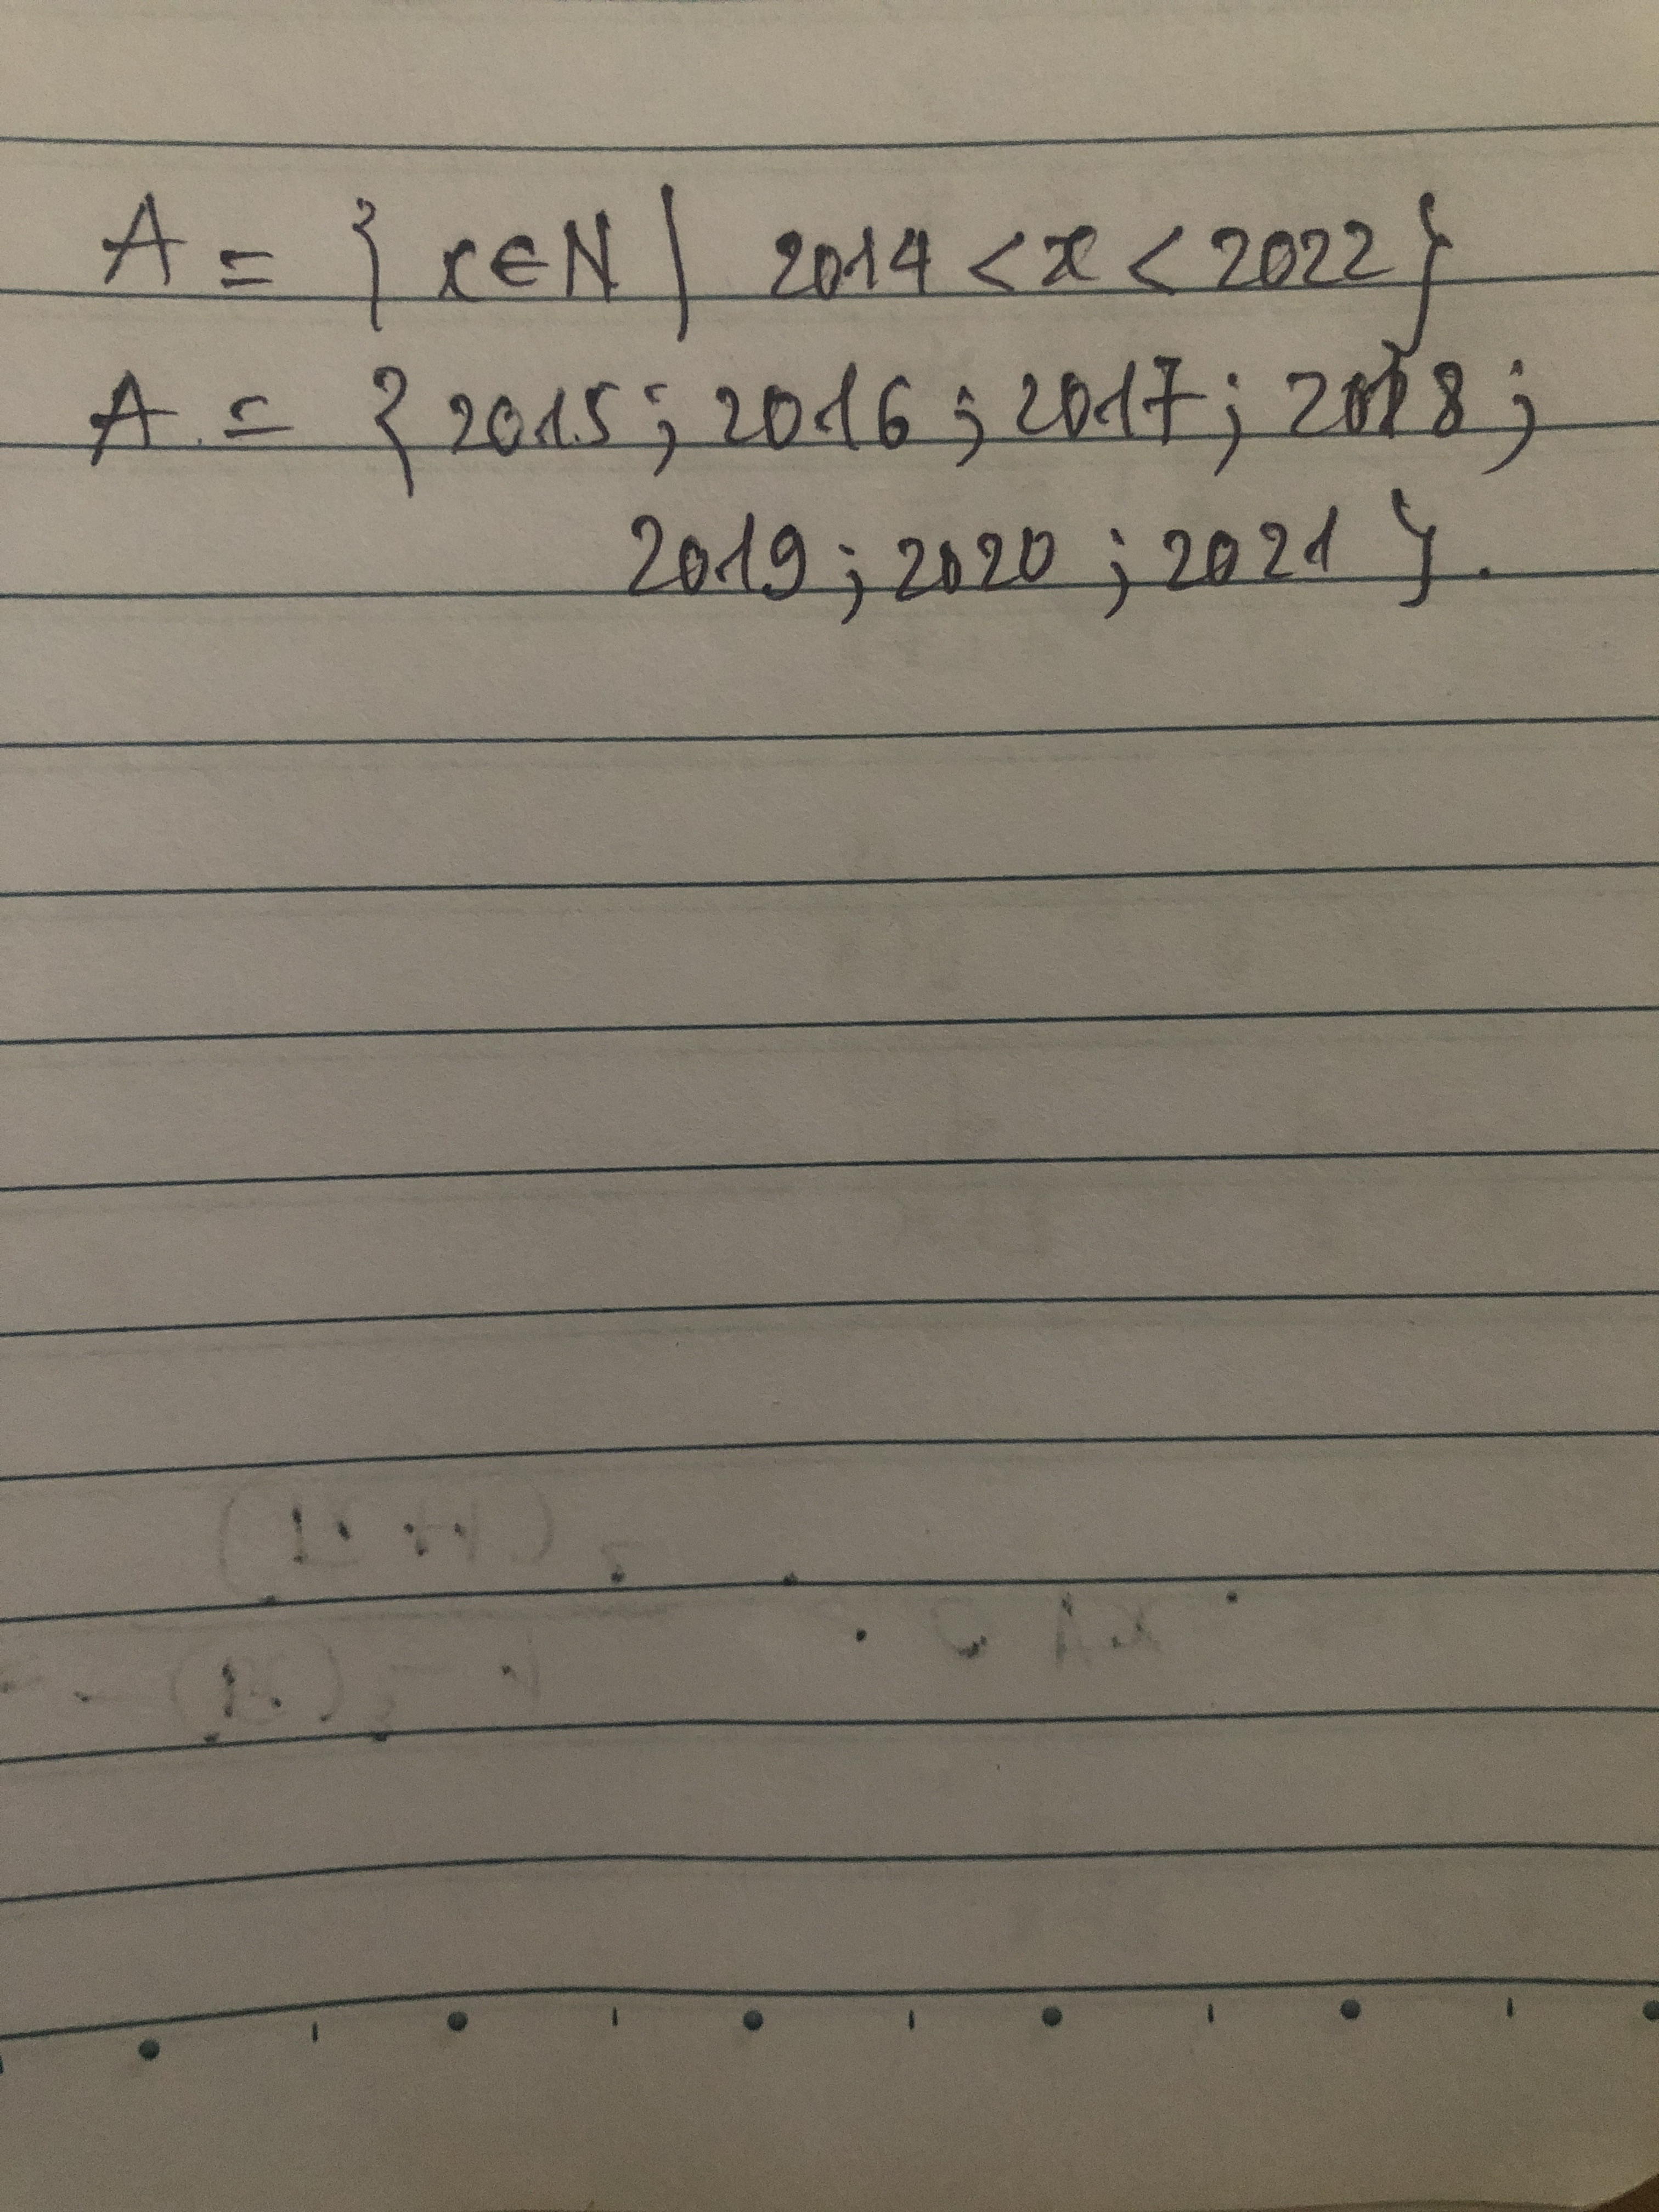 A = { x ∈ N | 2014 < x < 2022}
A = {2015; 2016; 2017; 2018;
2019; 2020; 2021}.